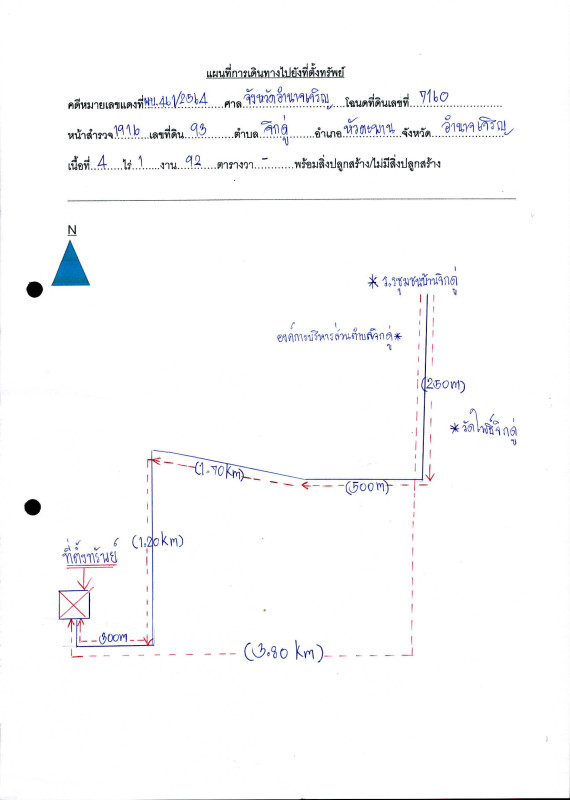 แผนที่การเดินทางไปยังที่ตั้งทรัพย์
คดีหมายเลขแดงที่ ผบ.461/2564 ศาล จังหวัดอำนาจเจริญ โฉนดที่ดินเลขที่ 7160
หน้าสำรวจ 1916 เลขที่ดิน 93 ตำบล จิกดู่ อำเภอ หัวตะพาน จังหวัด อำนาจเจริญ
เนื้อที่ 4 ไร่ 1 งาน 92 ตารางวา - พร้อมสิ่งปลูกสร้าง/ไม่มีสิ่งปลูกสร้าง
N
* ร.รชุมชนบ้านจิกดู่
องค์การบริหารส่วนตำบลจิกดู่ *
(250m)
* วัดโพธิ์จิกดู่
(1.70km)
(500m)
(1.20km)
ที่ตั้งทรัพย์
300m
(3.80 km)